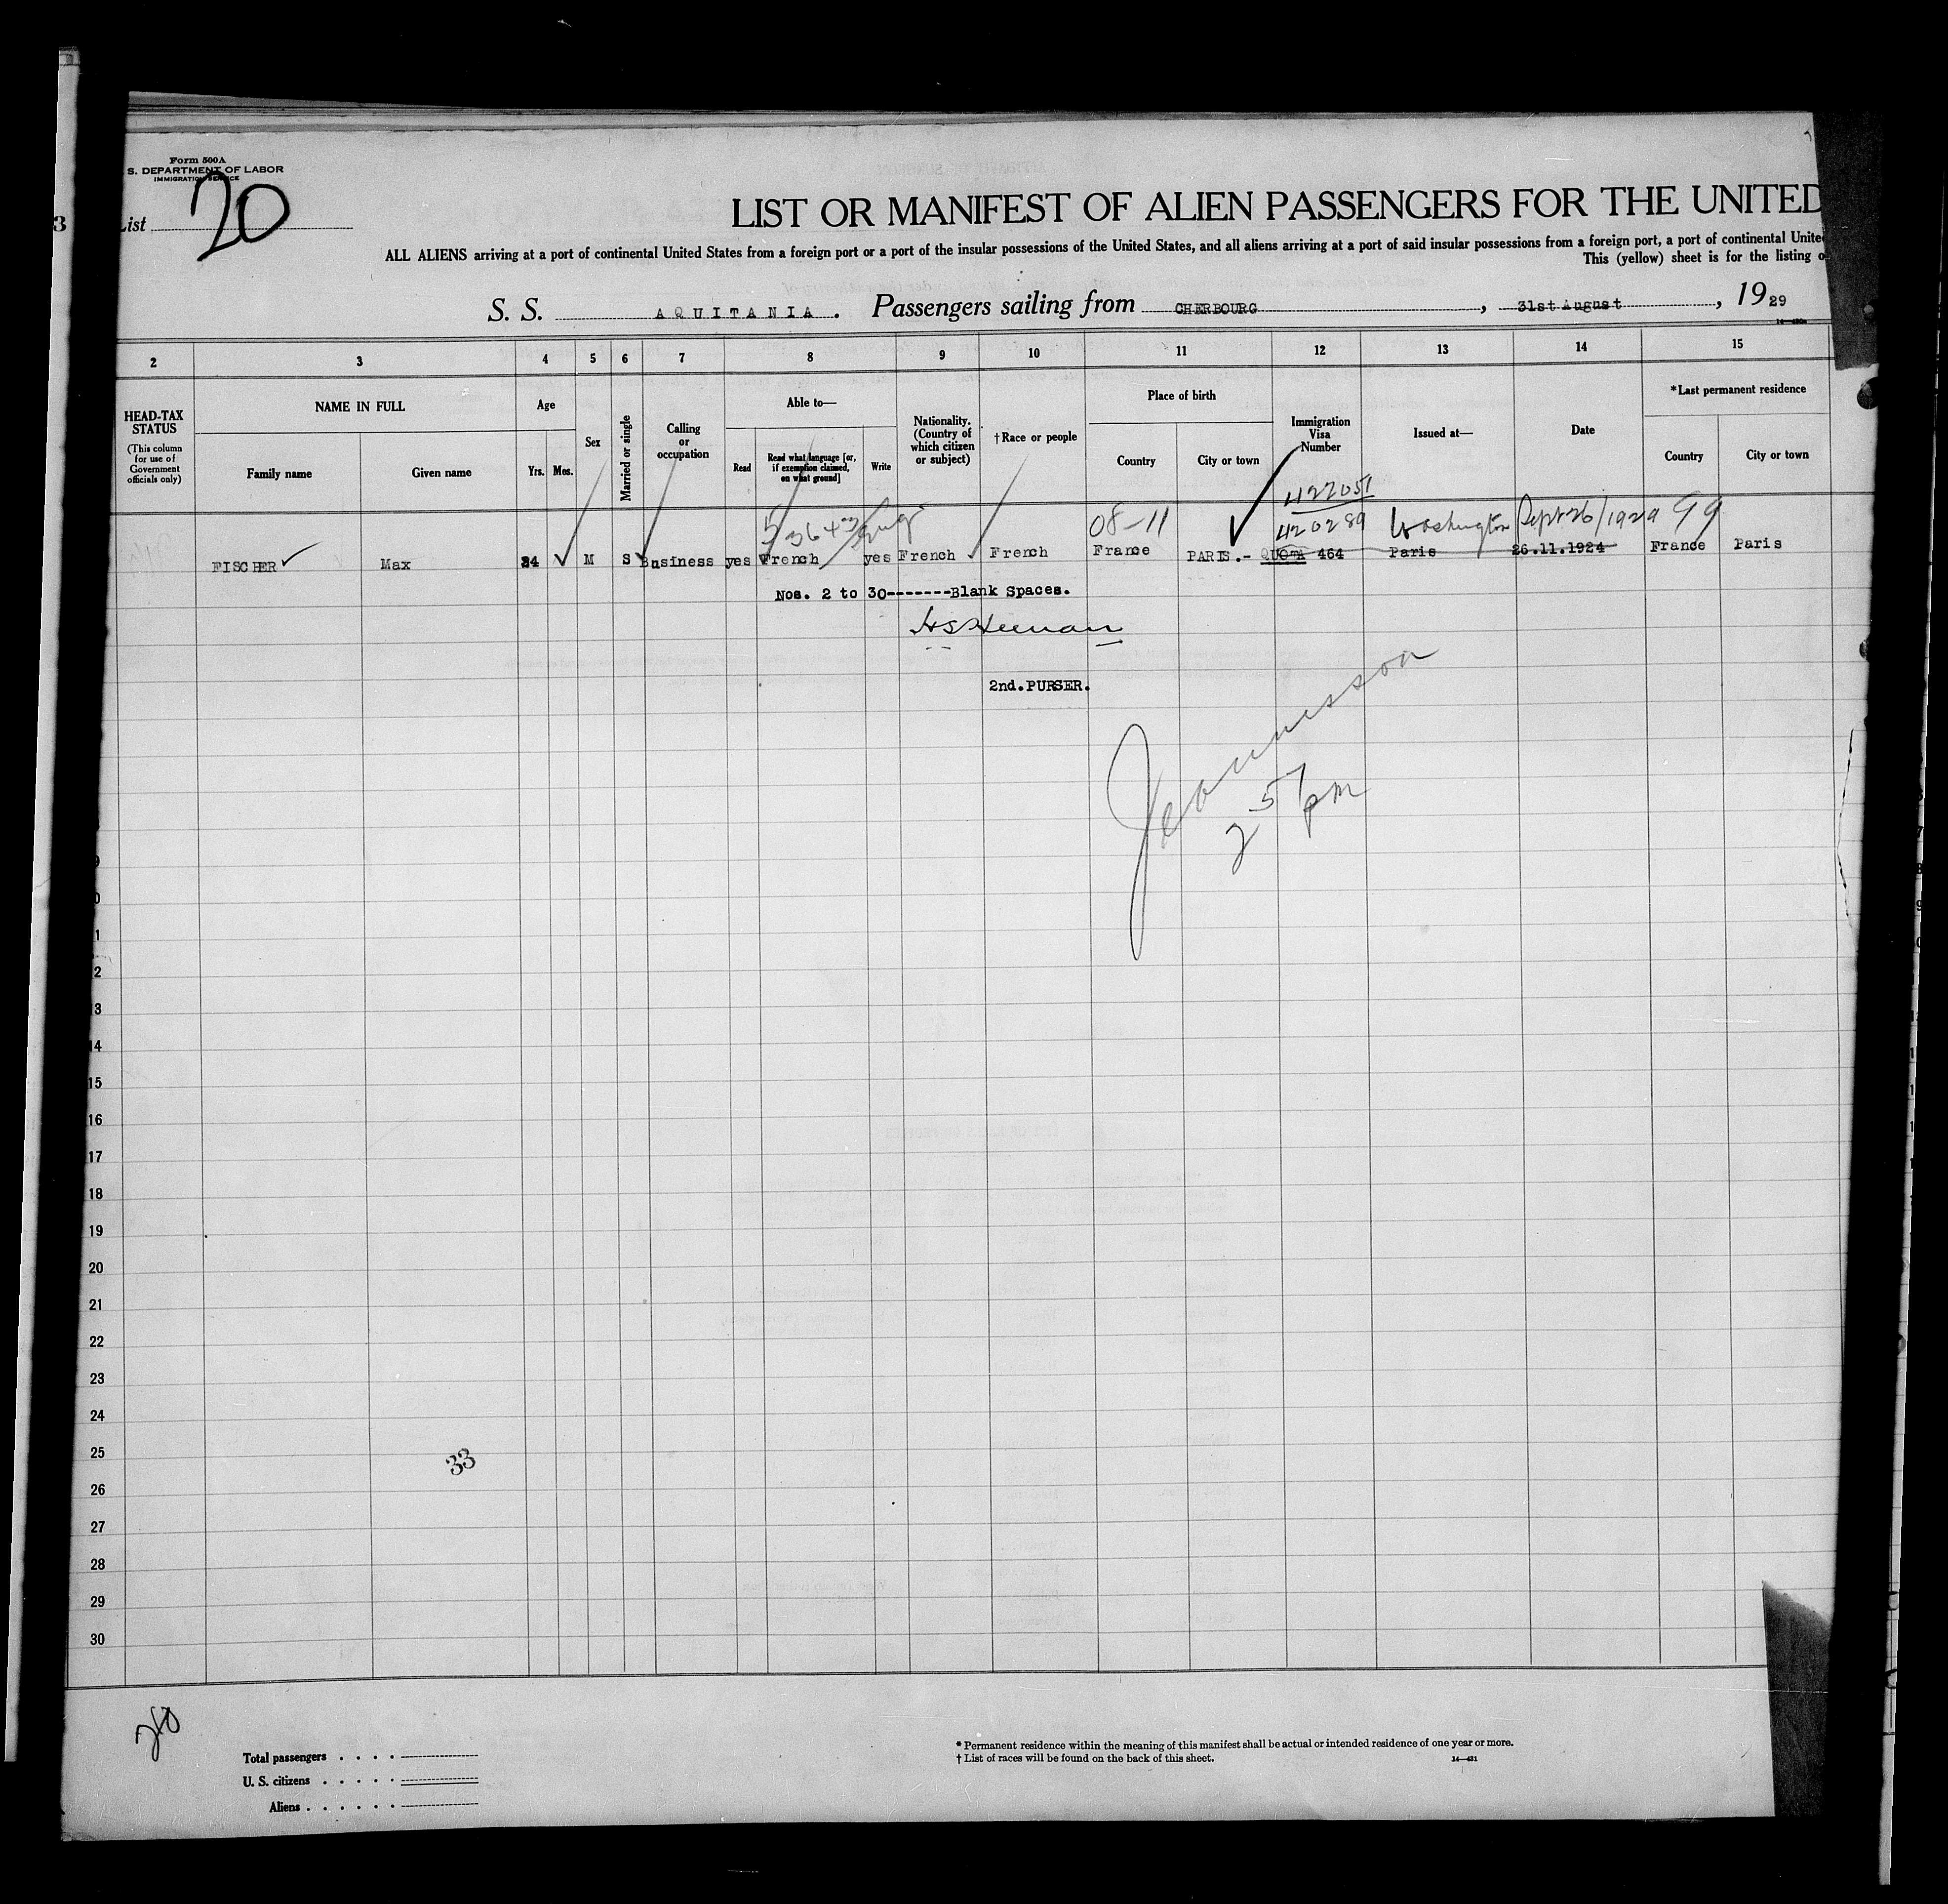 Form 500A
S. DEPARTMENT OF LABOR
IMMIGRATION SERVICE
List 20
3
LIST OR MANIFEST OF ALIEN PASSENGERS FOR THE UNITED
ALL ALIENS arriving at a port of continental United States from a foreign port or a port of the insular possessions of the United States, and all aliens arriving at a port of said insular possessions from a foreign port, a port of continental Unite
This (yellow) sheet is for the listing o
S. S. AQUITANIA. Passengers sailing from CHERBOURG, 31st August, 1929
2 3 4 5 6 7 8 9 10 11 12 13 14 15
HEAD-TAX STATUS
(This column for use of Government officials only)
NAME IN FULL
Family name
Given name
Age
Yrs. Mos.
Sex
Married or single
Calling or occupation
Able to—
Read
Read what language [or, if exemption claimed, on what ground]
Write
Nationality. (Country of which citizen or subject)
†Race or people
Place of birth
Country
City or town
Immigration Visa Number
Issued at—
Date
*Last permanent residence
Country
City or town
422051
08-11 420289 Washington Sept 26/1929 99
FISCHER Max 34 M S Business yes French yes French French France PARIS.- QUOTA 464 Paris 26.11.1924 France Paris
Nos. 2 to 30-------Blank Spaces.
2nd. PURSER.
2 57 pm
13
14
15
16
17
18
19
20
21
22
23
24
25
33
26
27
28
29
30
Total passengers
U. S. citizens
Aliens
* Permanent residence within the meaning of this manifest shall be actual or intended residence of one year or more.
† List of races will be found on the back of this sheet.
14—431